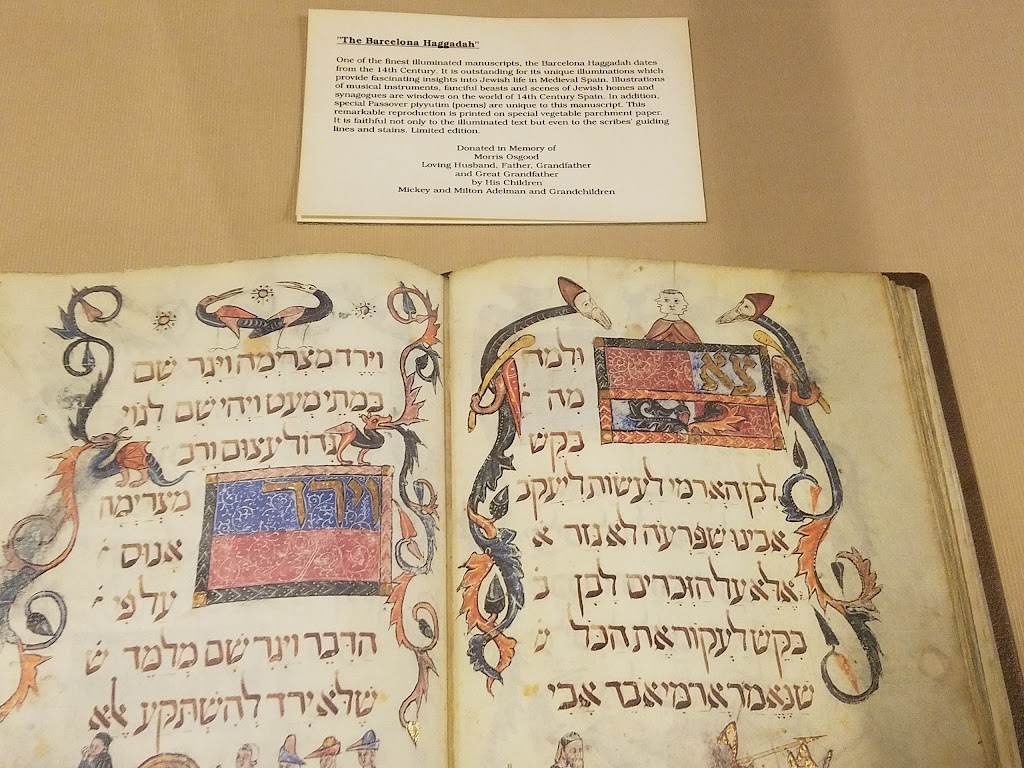 "The Barcelona Haggadah"
One of the finest illuminated manuscripts, the Barcelona Haggadah dates
from the 14th Century. It is outstanding for its unique illuminations which
provide fascinating insights into Jewish life in Medieval Spain. Illustrations
of musical instruments, fanciful beasts and scenes of Jewish homes and
synagogues are windows on the world of 14th Century Spain. In addition,
special Passover piyyutim (poems) are unique to this manuscript. This
remarkable reproduction is printed on special vegetable parchment paper.
It is faithful not only to the illuminated text but even to the scribes' guiding
lines and stains. Limited edition.
Donated in Memory of
Morris Osgood
Loving Husband, Father, Grandfather
and Great Grandfather
by His Children
Mickey and Milton Adelman and Grandchildren
צא ולמד
מה
בקש
לבן הארמי לעשות ליעקב
אבינו שפרעה לא גזר א
אלא על הזכרים לבן ב
בקש לעקור את הכל ש
שנאמר ארמי אבד אבי
וירד מצרימה ויגר שם
במתי מעט ויהי שם לגוי
גדול עצום ורב
וירד
מצרימה
אנוס
על פי
הדבר ויגר שם מלמד ש
שלא ירד להשתקע אלא